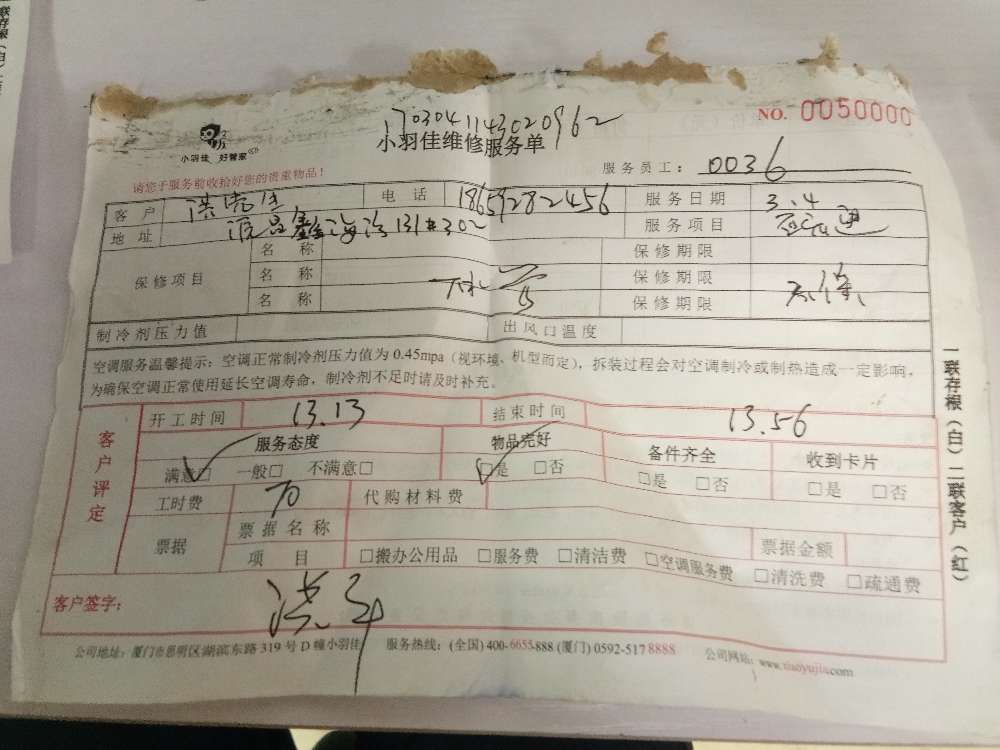 1703041143020962
小羽佳 好管家
小羽佳维修服务单
NO. 0050000
服务员工: 0036
请您于服务前收拾好您的贵重物品!
客户 电话 18659282456 服务日期 3.4
地址 131#302 服务项目
保修项目 名称 保修期限
名称 保修期限
名称 保修期限
制冷剂压力值 出风口温度
空调服务温馨提示:空调正常制冷剂压力值为 0.45mpa(视环境、机型而定),拆装过程会对空调制冷或制热造成一定影响,
为确保空调正常使用延长空调寿命,制冷剂不足时请及时补充。
客户评定
开工时间 13.13 结束时间 13.56
服务态度 物品完好 备件齐全 收到卡片
满意□ 一般□ 不满意□ □是 □否 □是 □否 □是 □否
工时费 70 代购材料费
票据 票据名称 票据金额
项目 □搬办公用品 □服务费 □清洁费 □空调服务费 □清洗费 □疏通费
客户签字:
公司地址:厦门市思明区湖滨东路 319 号 D 幢小羽佳 服务热线:(全国) 400-6655-888 (厦门) 0592-517 8888 公司网站:www.xiaoyujia.com
一联存根(白)二联客户(红)